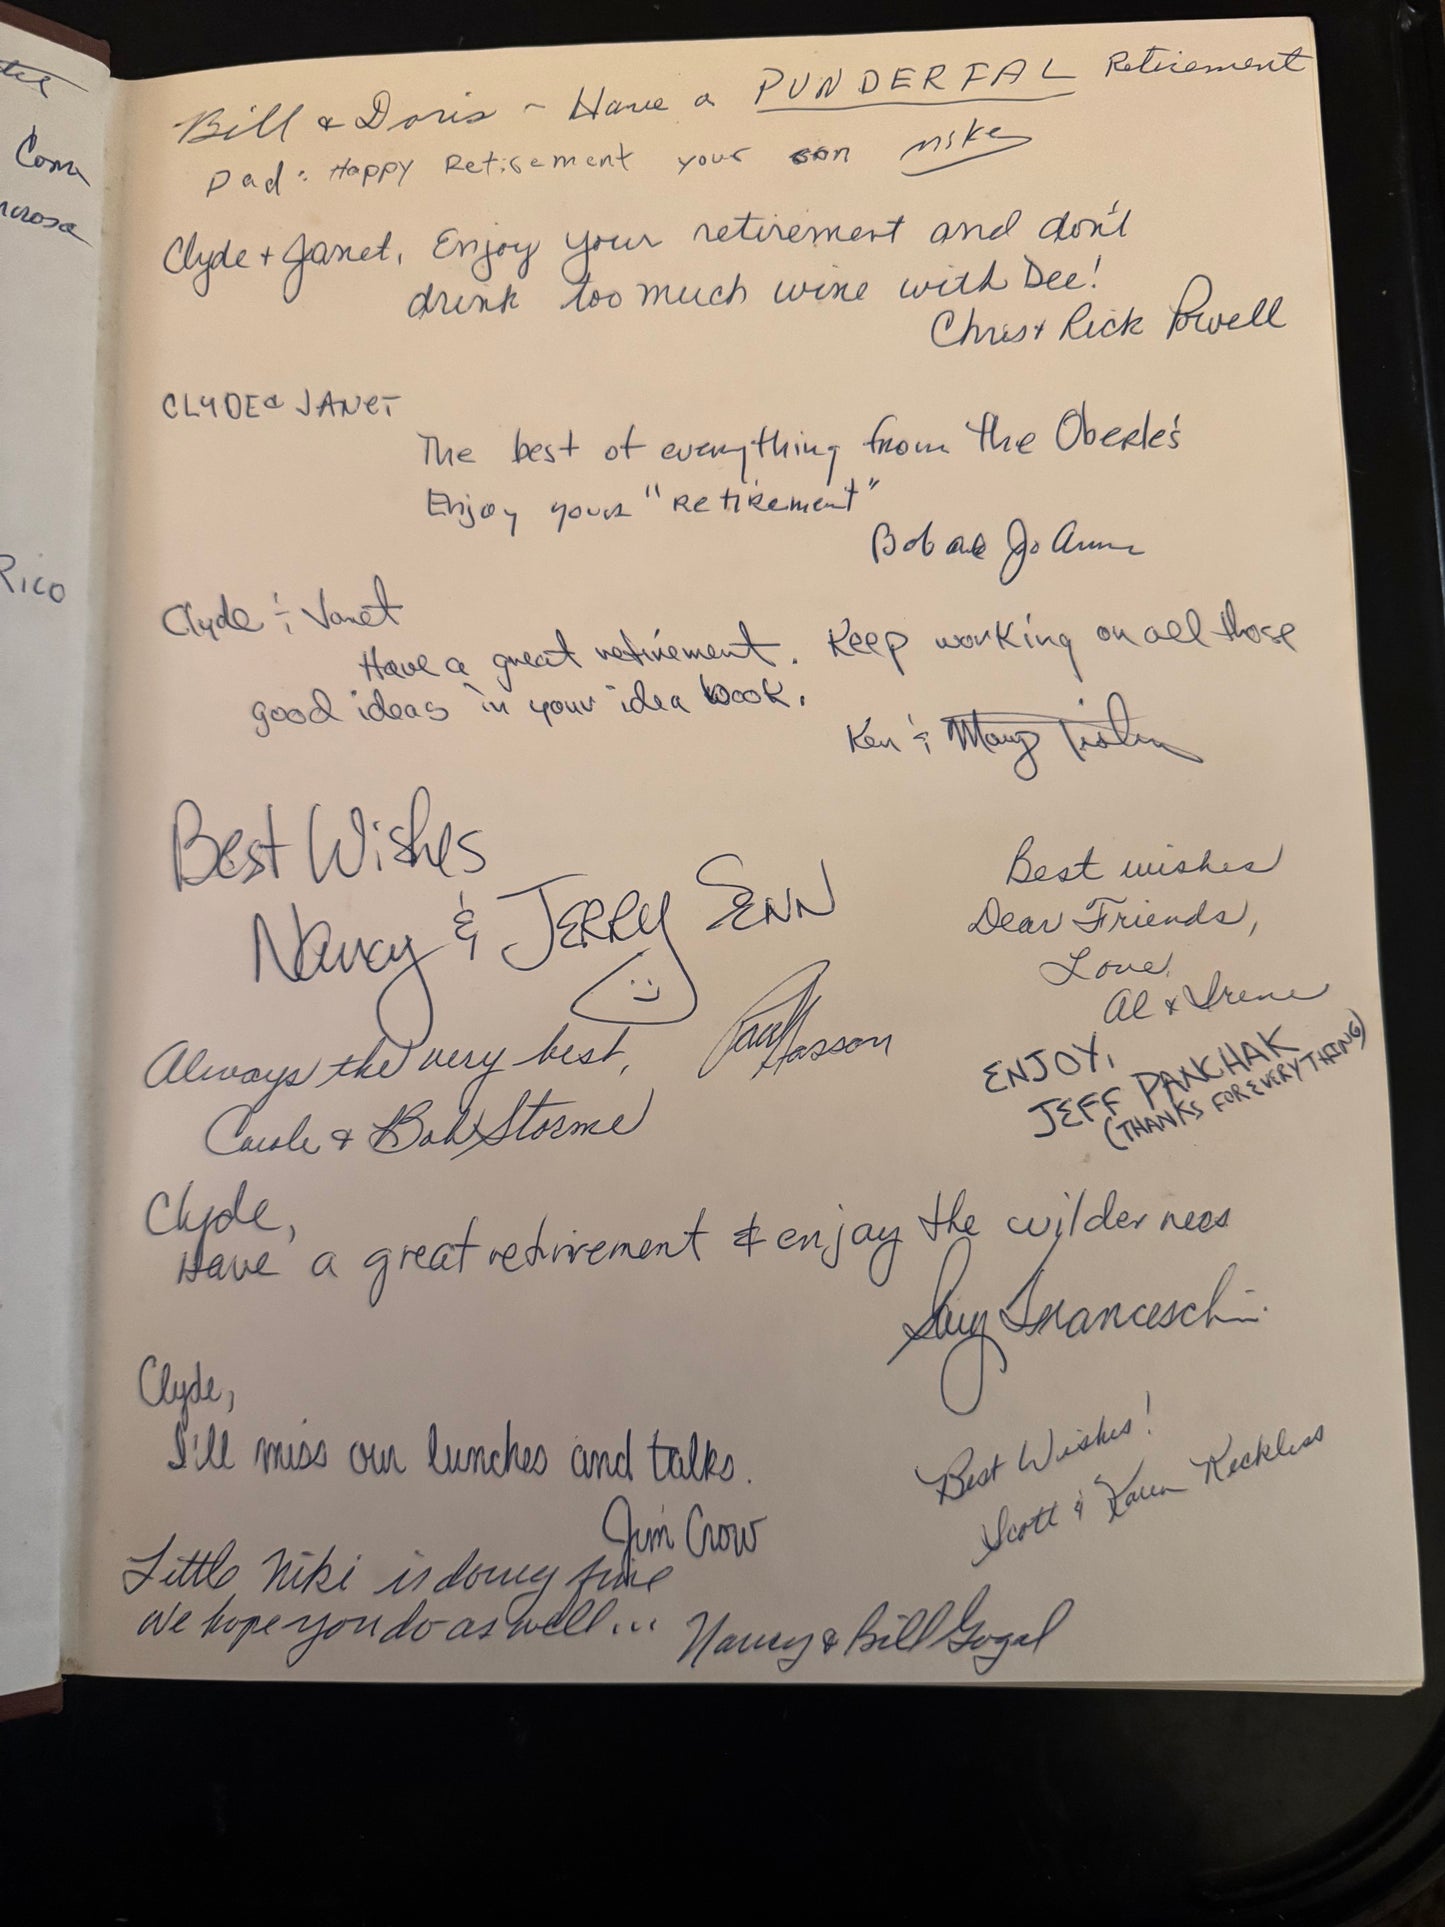 Com
Rico
Bill & Doris ~ Have a PUNDERFAL Retirement
Dad: Happy Retirement your son Mike
Clyde + Janet, Enjoy your retirement and don't
drink too much wine with Dee!
Chris + Rick Powell
CLYDE & JANET
The best of everything from the Oberle's
Enjoy your "retirement"
Bob and Jo Anne
Clyde & Janet
Have a great retirement. Keep working on all those
good ideas in your idea book.
Ken & Mary
Best Wishes
Nancy & JERRY SENN
Best wishes
Dear Friends,
Love,
Al & Irene
Always the very best,
Carole & Bob Storme
Paul Hasson
ENJOY,
JEFF PANCHAK
(THANKS FOR EVERYTHING)
Clyde,
Have a great retirement & enjoy the wilderness
Guy Franceschi
Clyde,
I'll miss our lunches and talks.
Jim Crow
Best Wishes!
Scott & Karen Reckless
Little Niki is doing fine
We hope you do as well... Nancy & Bill Gogal